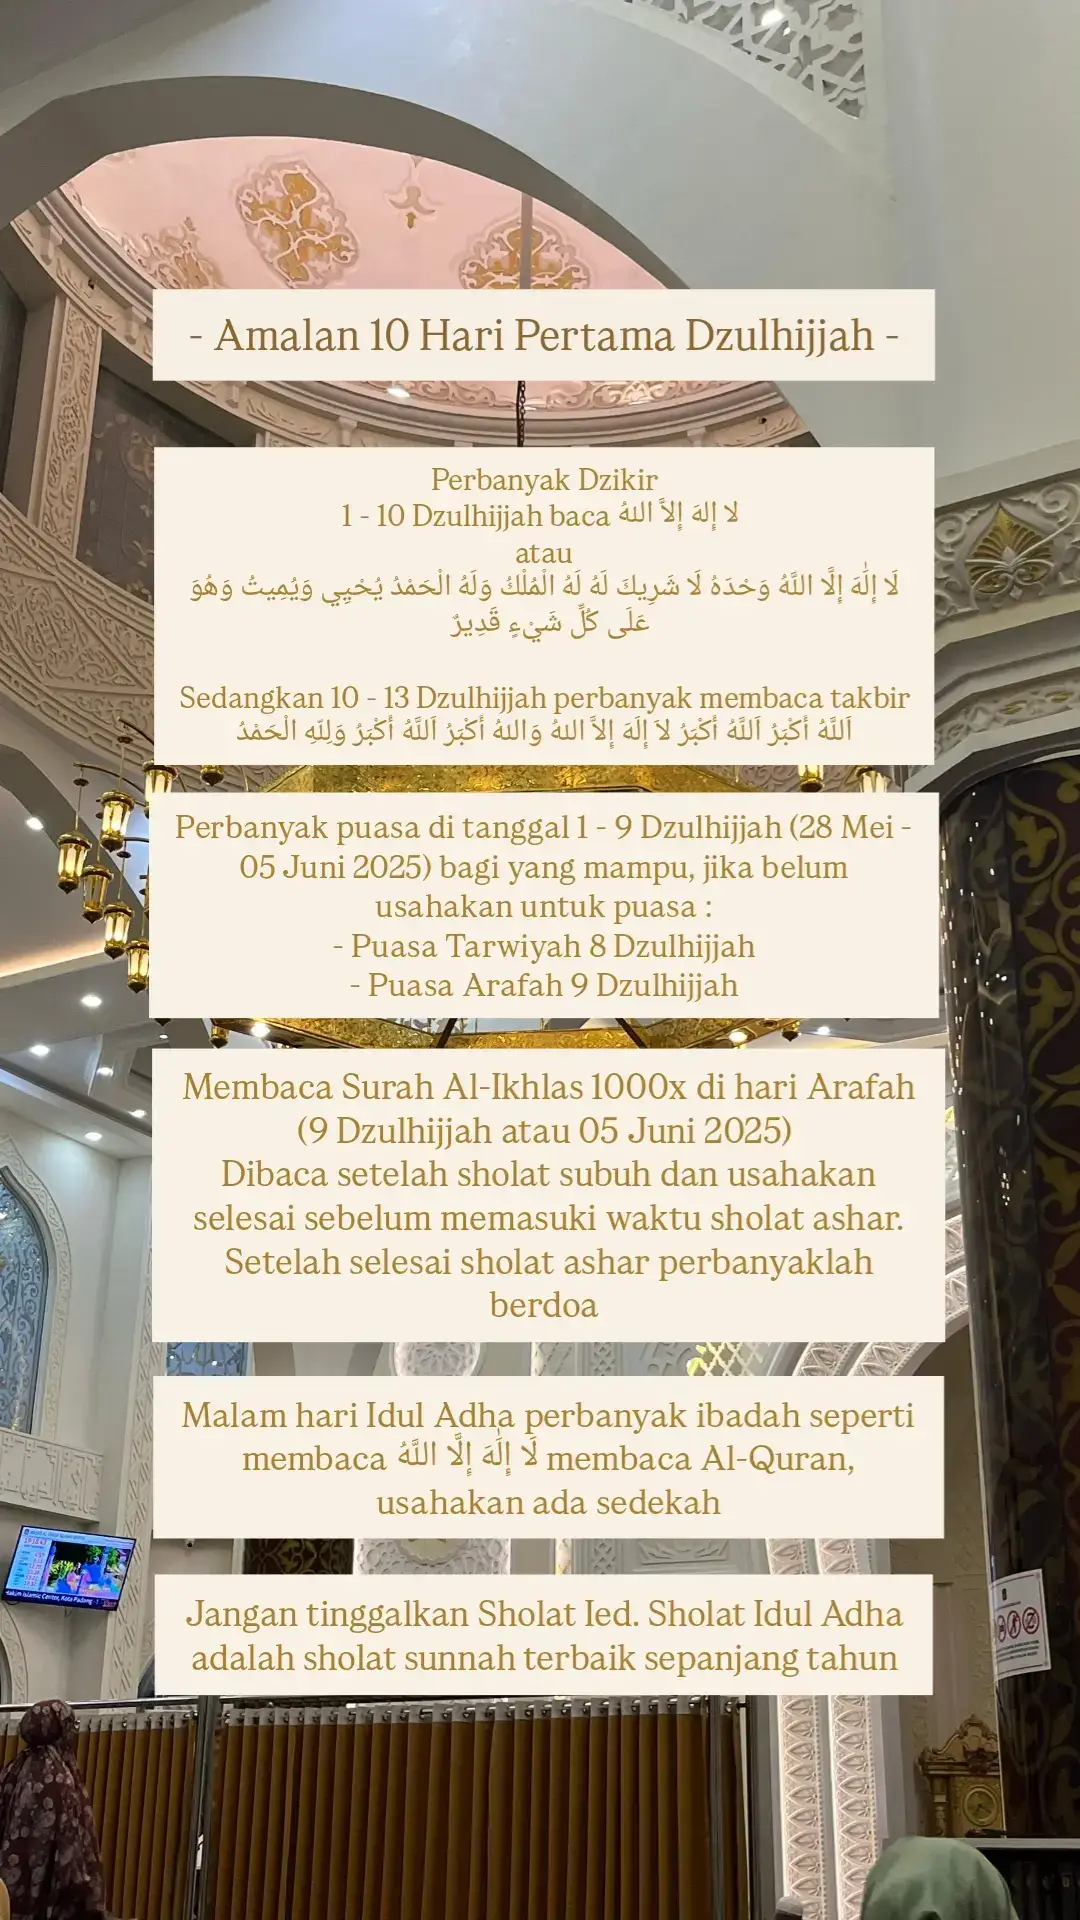 - Amalan 10 Hari Pertama Dzulhijjah -
Perbanyak Dzikir
1 - 10 Dzulhijjah baca لا إلهَ إلاَّ اللهُ
atau
لَا إِلَٰهَ إِلَّا اللَّهُ وَحْدَهُ لَا شَرِيكَ لَهُ لَهُ الْمُلْكُ وَلَهُ الْحَمْدُ يُحْيِي وَيُمِيتُ وَهُوَ
عَلَى كُلِّ شَيْءٍ قَدِيرٌ
Sedangkan 10 - 13 Dzulhijjah perbanyak membaca takbir
اَللَّهُ أَكْبَرُ اَللَّهُ أَكْبَرُ لاَ إِلَهَ إِلاَّ اللهُ وَاللهُ أَكْبَرُ اَللَّهُ أَكْبَرُ وَلِلّهِ الْحَمْدُ
Perbanyak puasa di tanggal 1 - 9 Dzulhijjah (28 Mei -
05 Juni 2025) bagi yang mampu, jika belum
usahakan untuk puasa :
- Puasa Tarwiyah 8 Dzulhijjah
- Puasa Arafah 9 Dzulhijjah
Membaca Surah Al-Ikhlas 1000x di hari Arafah
(9 Dzulhijjah atau 05 Juni 2025)
Dibaca setelah sholat subuh dan usahakan
selesai sebelum memasuki waktu sholat ashar.
Setelah selesai sholat ashar perbanyaklah
berdoa
Malam hari Idul Adha perbanyak ibadah seperti
membaca لَا إِلَٰهَ إِلَّا اللَّهُ membaca Al-Quran,
usahakan ada sedekah
Jangan tinggalkan Sholat Ied. Sholat Idul Adha
adalah sholat sunnah terbaik sepanjang tahun
Islamic Center, Kota Padang